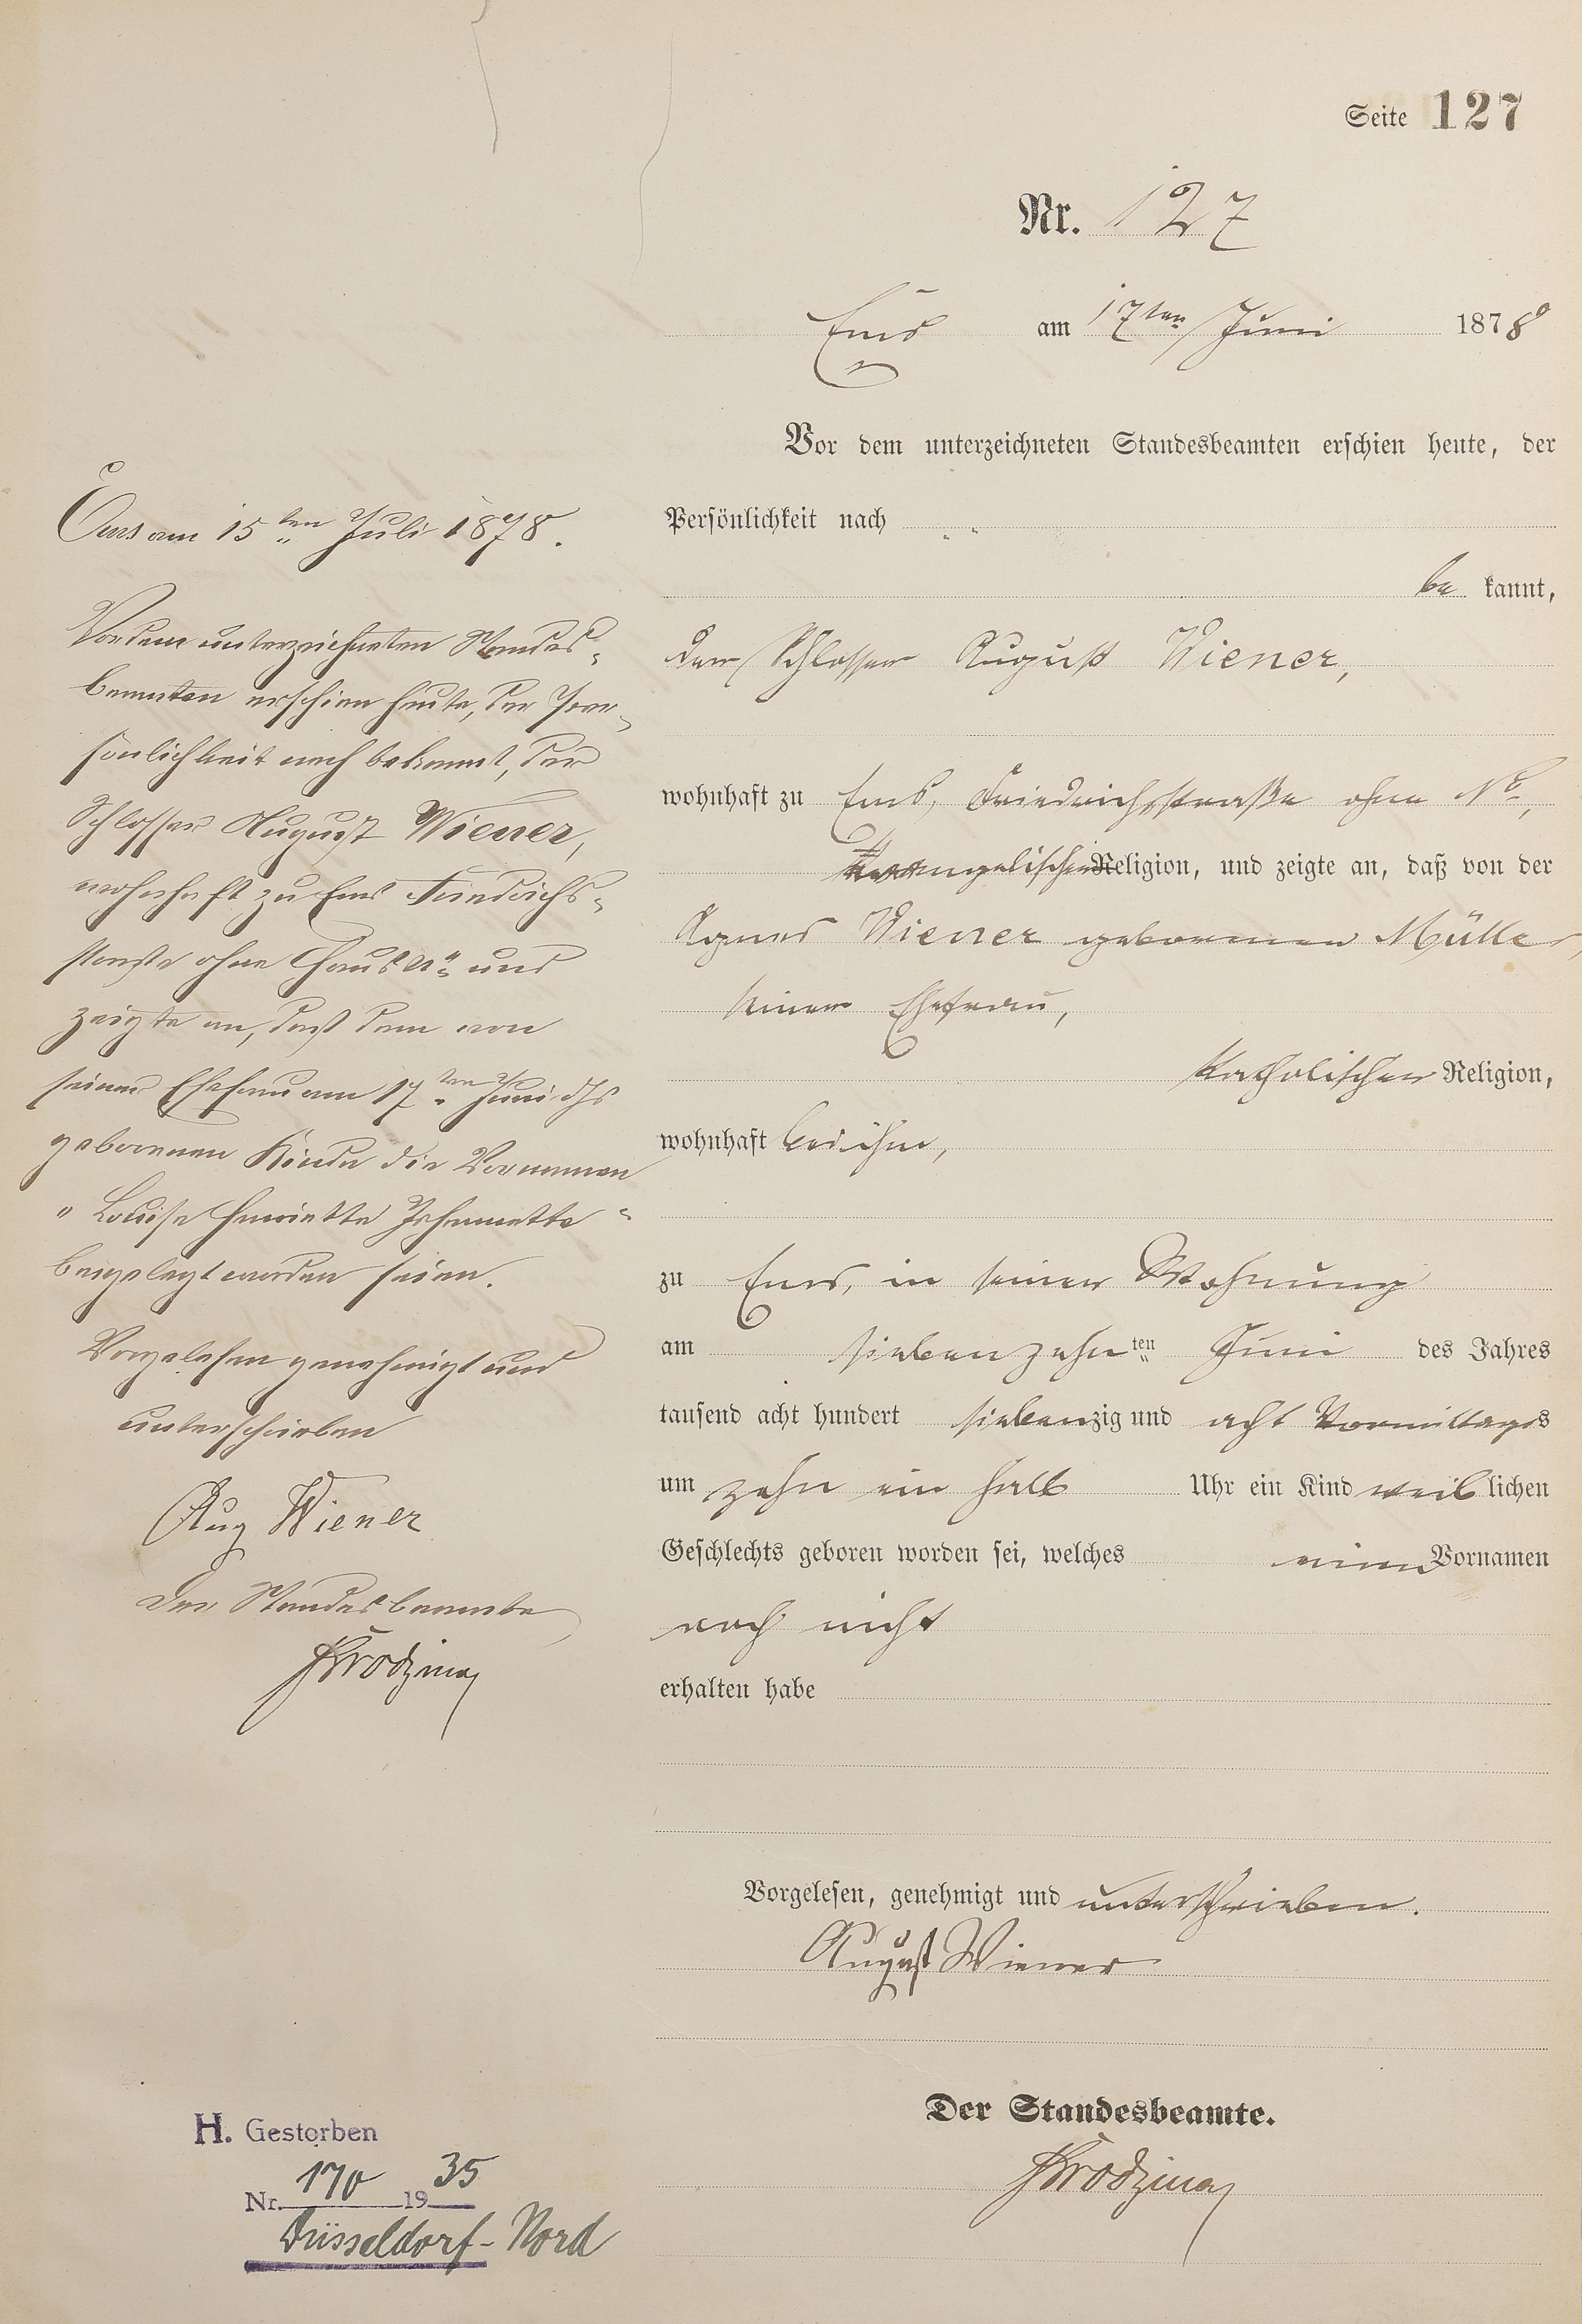 Seite 127
Nr. 127
Ems am 17ten Juni 1878
Vor dem unterzeichneten Standesbeamten erschien heute, der
Persönlichkeit nach
be kannt,
der Schlosser August Wiener,
wohnhaft zu Ems, Friedrichsstraße ohne No,
evangelischer Religion, und zeigte an, daß von der
Agnes Wiener geborenen Müller,
seiner Ehefrau,
katholischer Religion,
wohnhaft bei ihm,
zu Ems, in seiner Wohnung
am siebenzehnten Juni des Jahres
tausend acht hundert siebenzig und acht Vormittags
um zehn ein halb Uhr ein Kind weiblichen
Geschlechts geboren worden sei, welches einen Vornamen
noch nicht
erhalten habe
Vorgelesen, genehmigt und unterschrieben.
August Wiener
Der Standesbeamte.
Ems am 15ten Juli 1878.
Vor dem unterzeichneten Standes-
beamten erschien heute, der Per-
sönlichkeit nach bekannt, der
Schlosser August Wiener,
wohnhaft zu Ems Friedrichs-
straße ohne Haus No und
zeigte an, daß dem von
seiner Ehefrau am 17ten Juni ds Js
geborenen Kinde die Vornamen
"Louise Henriette Jehannette"
beigelegt worden seien.
Vorgelesen genehmigt und
unterschrieben
Aug Wiener
Der Standesbeamte
H. Gestorben
Nr. 170 1935
Düsseldorf-Nord